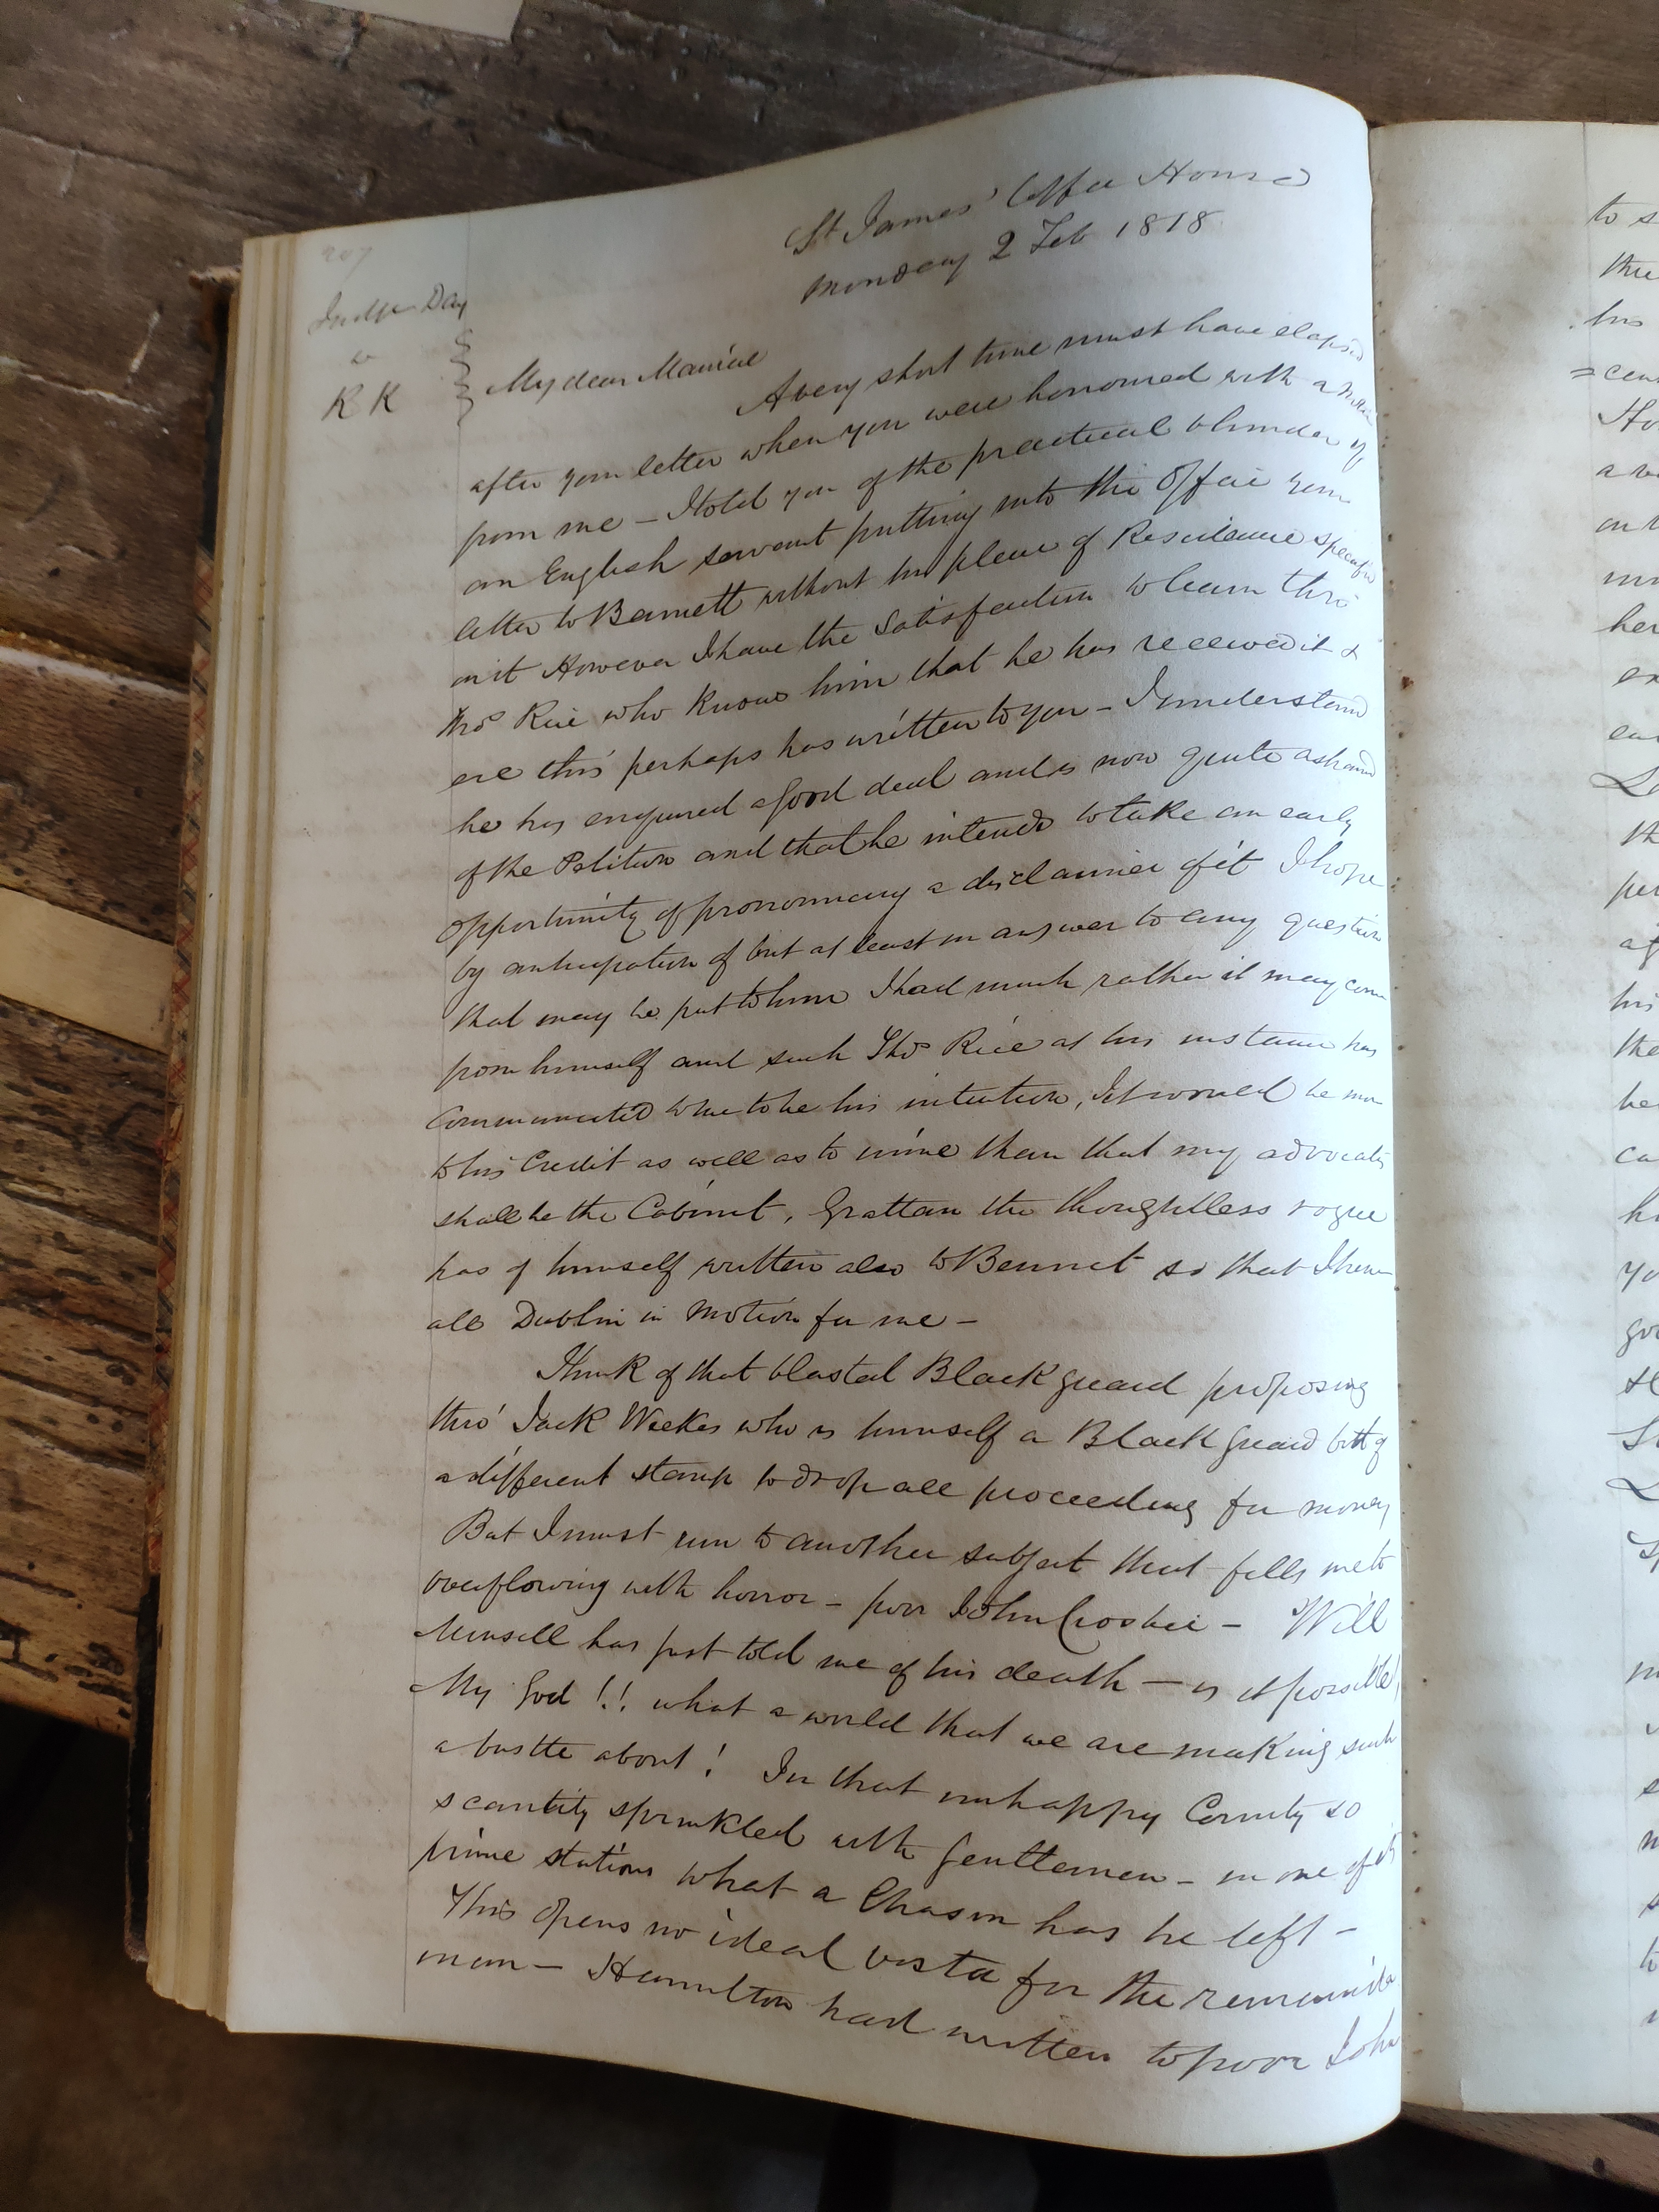 207
St James' Coffee House
Monday 2 Feb 1818
Judge Day
to
R K
My dear Maurice
A very short time must have elapsed
after your letter when you were honoured with a
from me – I told you of the practical blunder of
an English servant putting into the Office your
letter to Bennett without his place of Residence specified
on it However I have the Satisfaction to learn thro'
Thos Rice who knows him that he has received it &
ere this perhaps has written to you – I understand
he has enquired a good deal and is now quite ashamed
of the Petition and that he intends to take an early
opportunity of pronouncing a disclaimer of it I hope
by anticipation of but at least in answer to any question
that may be put to him I had much rather it may come
from himself and such Thos Rice at his instance has
communicated to me to be his intention, It would be more
to his Credit as well as to mine than that my advocate
shall be the Cabinet, Grattan the thoughtless rogue
has of himself written also to Bennet so that I have
all Dublin in motion for me –
Think of that blasted Black guard proposing
thro' Jack Weekes who is himself a Black guard but of
a different stamp to drop all proceeding for money
But I must run to another subject that fills me to
overflowing with horror – poor John Crosbie – Will
Munsell has just told me of his death – is it possible!
My God!! what a world that we are making such
a bustle about! In that unhappy County so
scantily sprinkled with Gentlemen – in one of its
prime stations what a Chasm has he left –
This opens no ideal vista for the remainder
man – Hamilton had written to poor John
to s